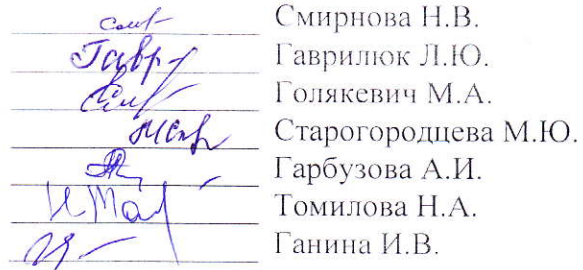 Смирнова Н.В.
Гаврилюк Л.Ю.
Голякевич М.А.
Старогородцева М.Ю.
Гарбузова А.И.
Томилова Н.А.
Ганина И.В.